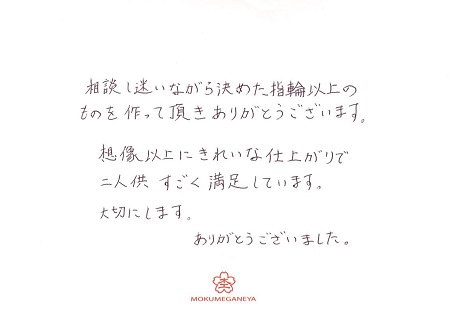 相談し迷いながら決めた指輪以上の
ものを作って頂きありがとうございます。
想像以上にきれいな仕上がりで
二人供 すごく満足しています。
大切にします。
ありがとうございました。
MOKUMEGANEYA